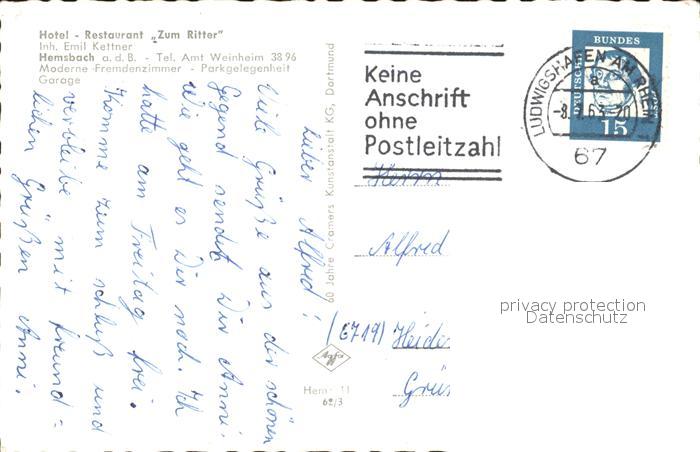 Hotel - Restaurant „Zum Ritter"
Inh. Emil Kettner
Hemsbach a.d.B. - Tel. Amt Weinheim 3896
Moderne Fremdenzimmer - Parkgelegenheit
Garage
Lieber Alfred!
Viele Grüße aus der schönen
Gegend sendet Dir Anni.
Wie geht es Dir noch. Ich
hatte am Freitag frei.
Komme zum schluß und
verbleibe mit freund=
lichen Grüßen Anni.
60 Jahre Cramers Kunstanstalt KG, Dortmund
Agfa
Hem 11
62/3
Keine
Anschrift
ohne
Postleitzahl
LUDWIGSHAFEN AM RHEIN
a
63-20
67
DEUTSCHE BUNDES
15
Herrn
Alfred
(6719) Heide
Grü
privacy protection
Datenschutz